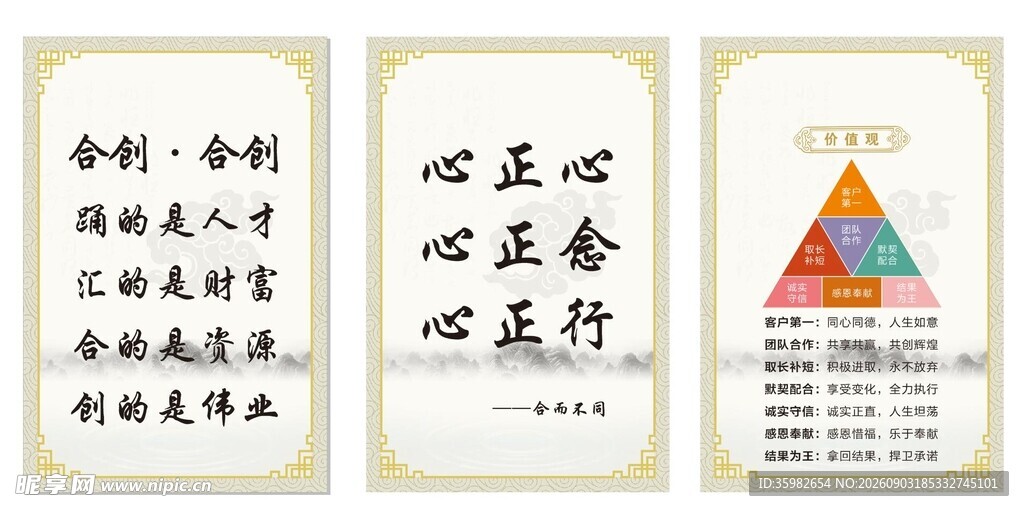 合创·合创
踊的是人才
汇的是财富
合的是资源
创的是伟业
心正心
心正念
心正行
——合而不同
价值观
客户
第一
团队
合作
取长
补短
默契
配合
诚实
守信
感恩奉献
结果
为王
客户第一：同心同德，人生如意
团队合作：共享共赢，共创辉煌
取长补短：积极进取，永不放弃
默契配合：享受变化，全力执行
诚实守信：诚实正直，人生坦荡
感恩奉献：感恩惜福，乐于奉献
结果为王：拿回结果，捍卫承诺
昵享网 www.nipic.cn
ID:35982654 NO:20260903185332745101